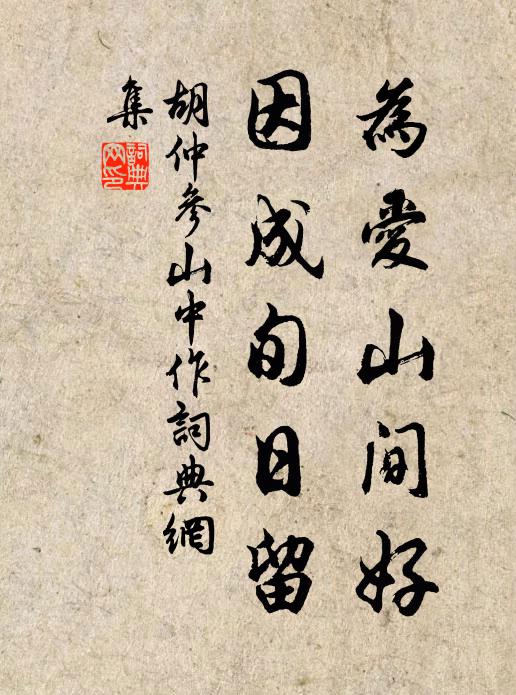 為愛山間好
因成旬日留
胡仲參山中作詞典網
集
詞典網印